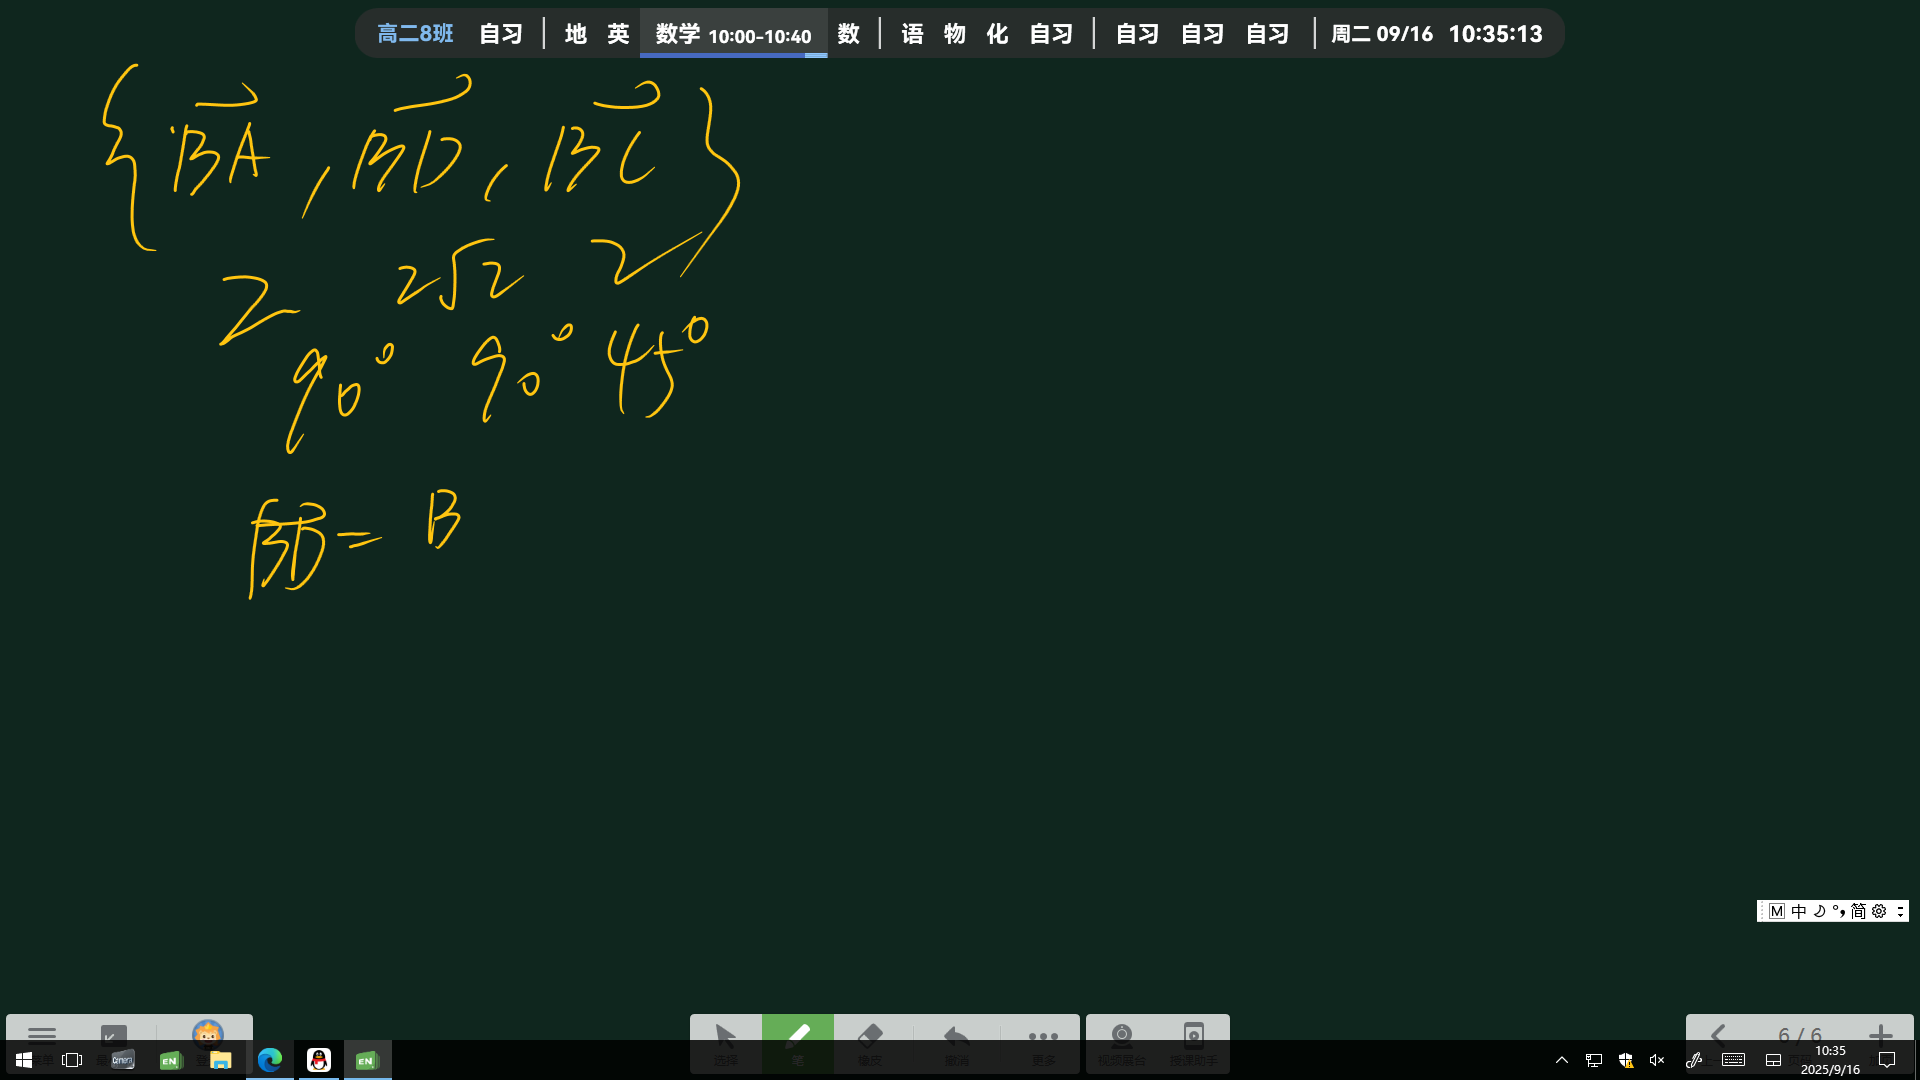 高二8班 自习 | 地 英 数学 10:00-10:40 数 | 语 物 化 自习 | 自习 自习 自习 | 周二 09/16 10:35:13
{BA, BD, BC}
2 2√2 2
90° 90° 45°
BD = B
M 中 简
6 / 6
选择 笔 橡皮 撤消 更多 视频展台 授课助手
Camera EN EN
10:35
2025/9/16